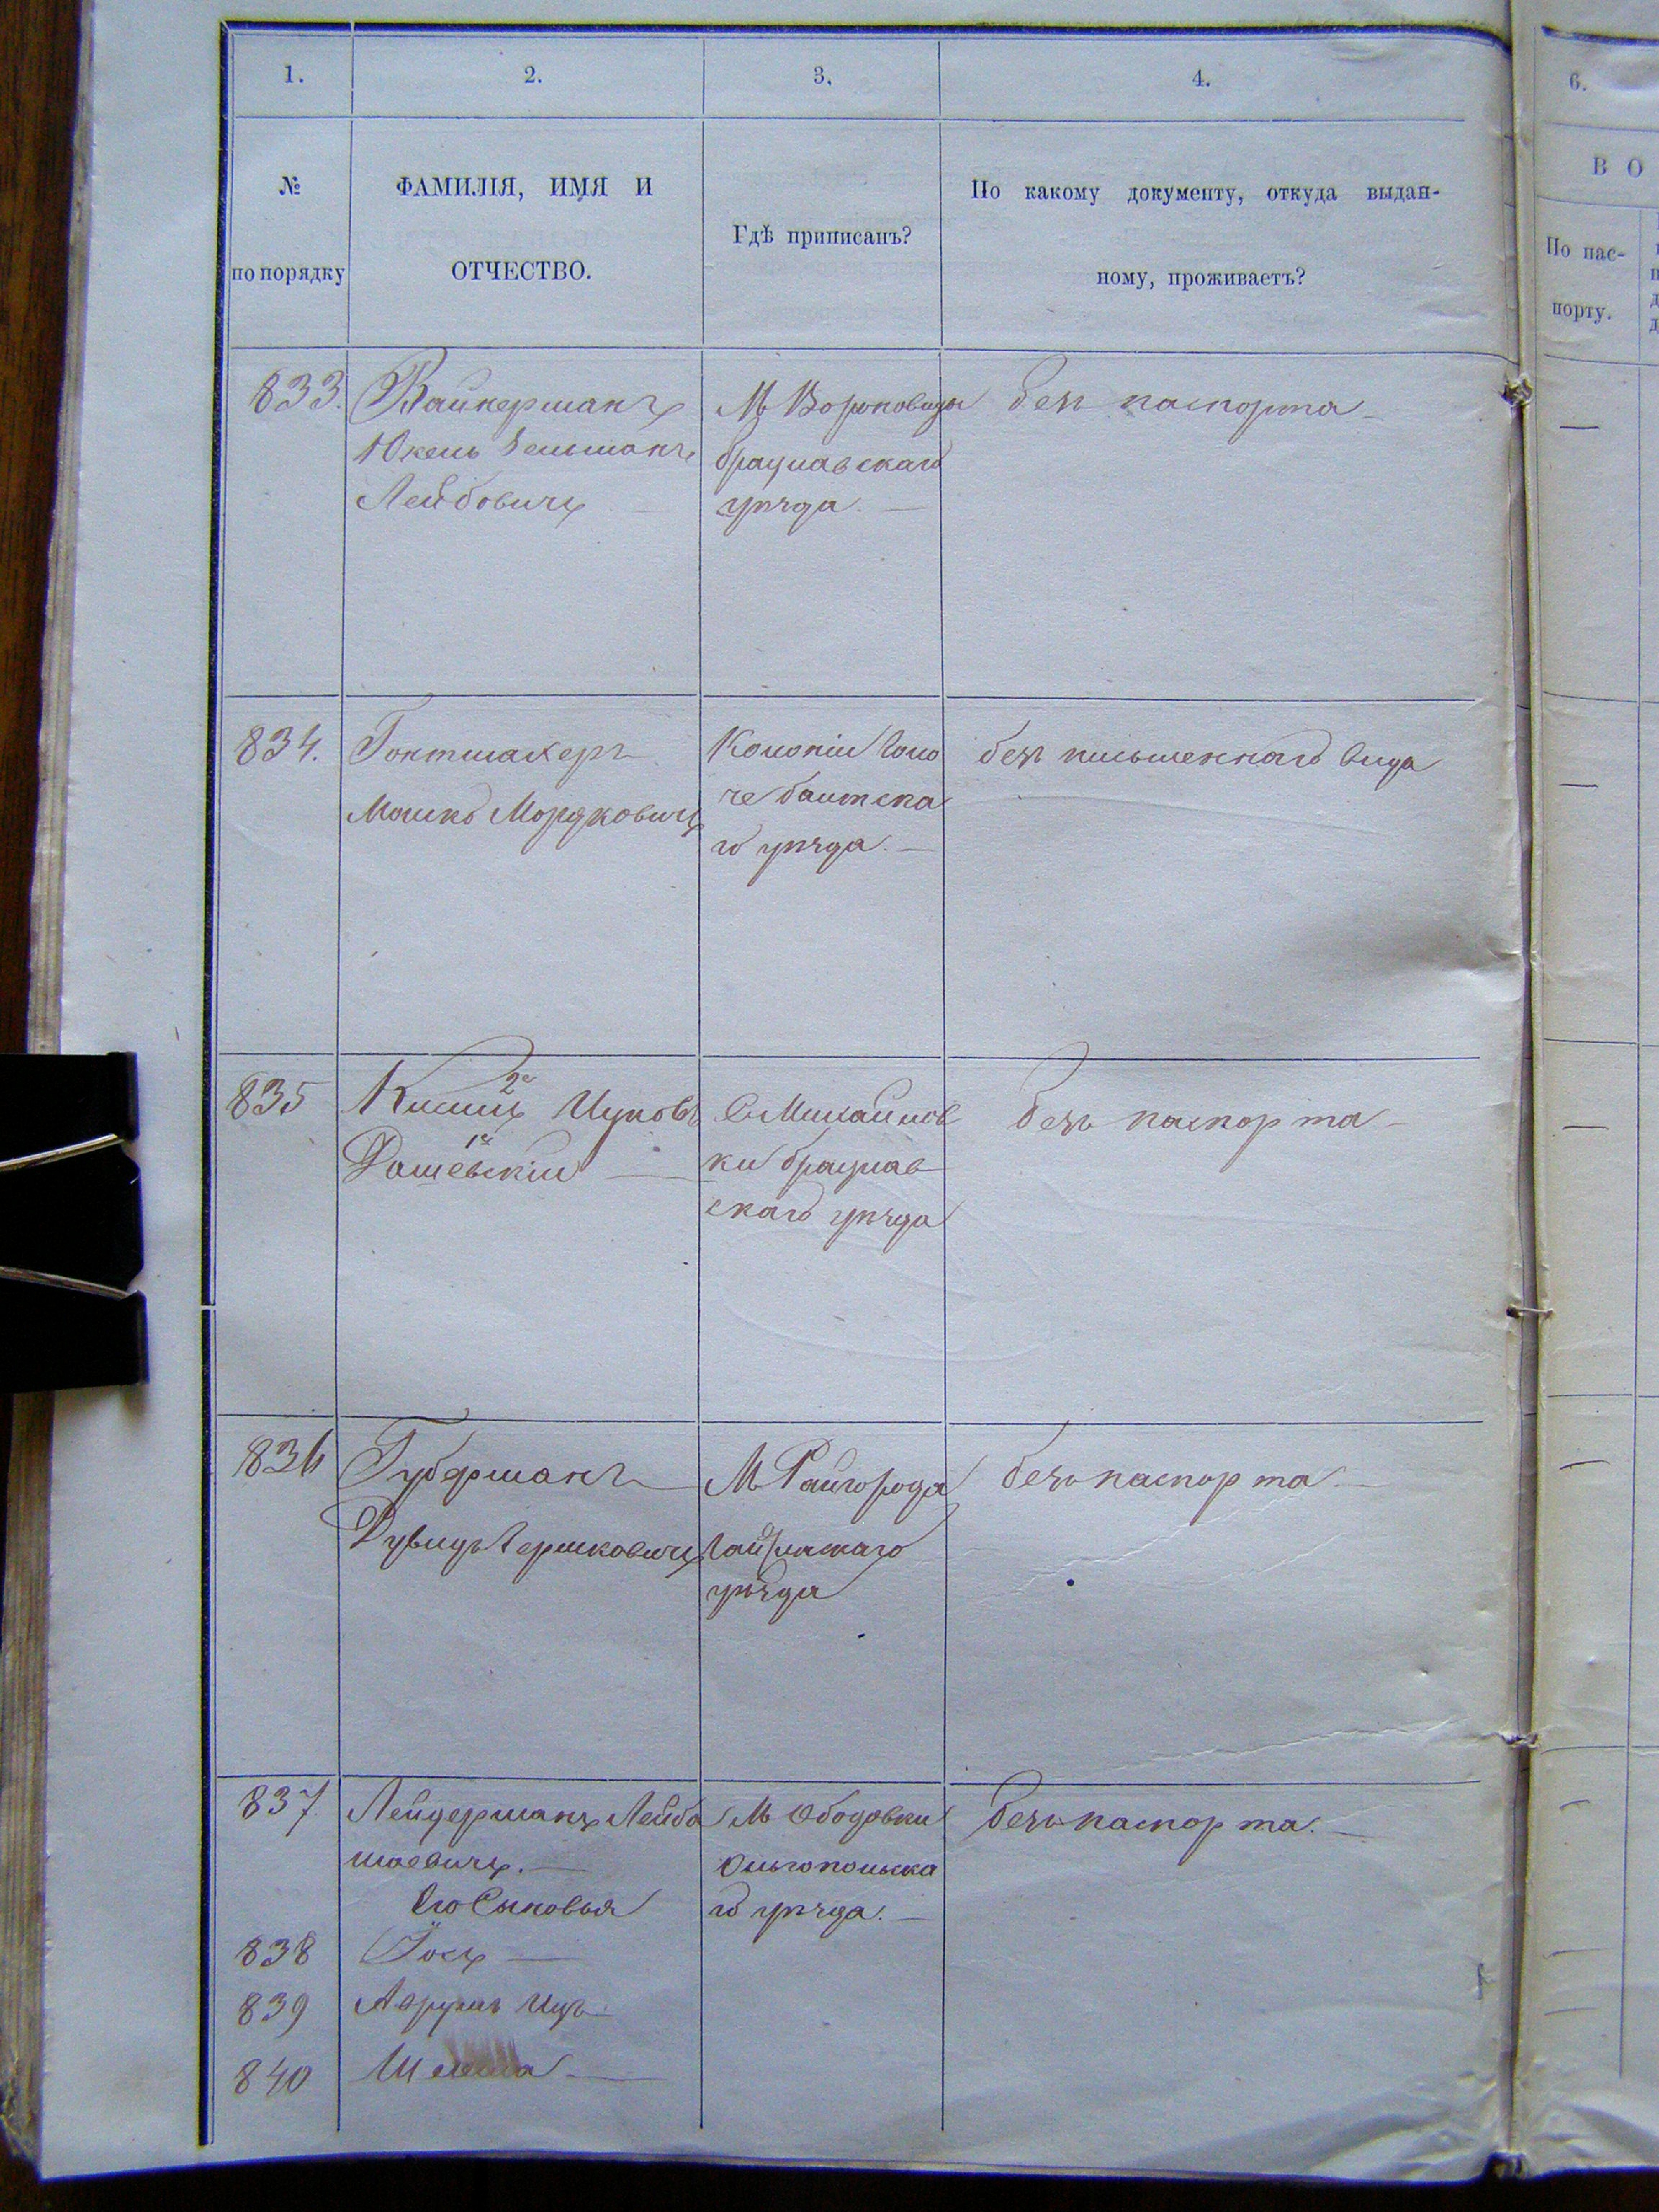 1. 2. 3. 4. 6.
№
по порядку
ФАМИЛІЯ, ИМЯ И
ОТЧЕСТВО.
Гдѣ приписанъ?
По какому документу, откуда выдан-
ному, проживаетъ?
В О
По пас-
порту.
833. Вайнерманъ
Зельманъ
Лейбовичъ
М Вороновицы
брацлавскаго
уѣзда.
безъ паспорта
834. Гонтмахеръ
Мошко Мордковичъ
Колоніи Голо
че балтска
го уѣзда.
безъ письменнаго вида
835 2й Ицковъ
1й
Дашевскій
С Михайлов
ки брацлав
скаго уѣзда
безъ паспорта
836 Губерманъ
Дувидъ Гершковичъ
М Райгорода
Гайсинскаго
уѣзда
безъ паспорта.
837 Лейдерманъ Лейба
Шаевичъ.
Его Сыновья
М Ободовки
Ольгопольска
го уѣзда.
безъ паспорта.
838 Іосъ
839 Аврумъ Ицъ
840 Шлема